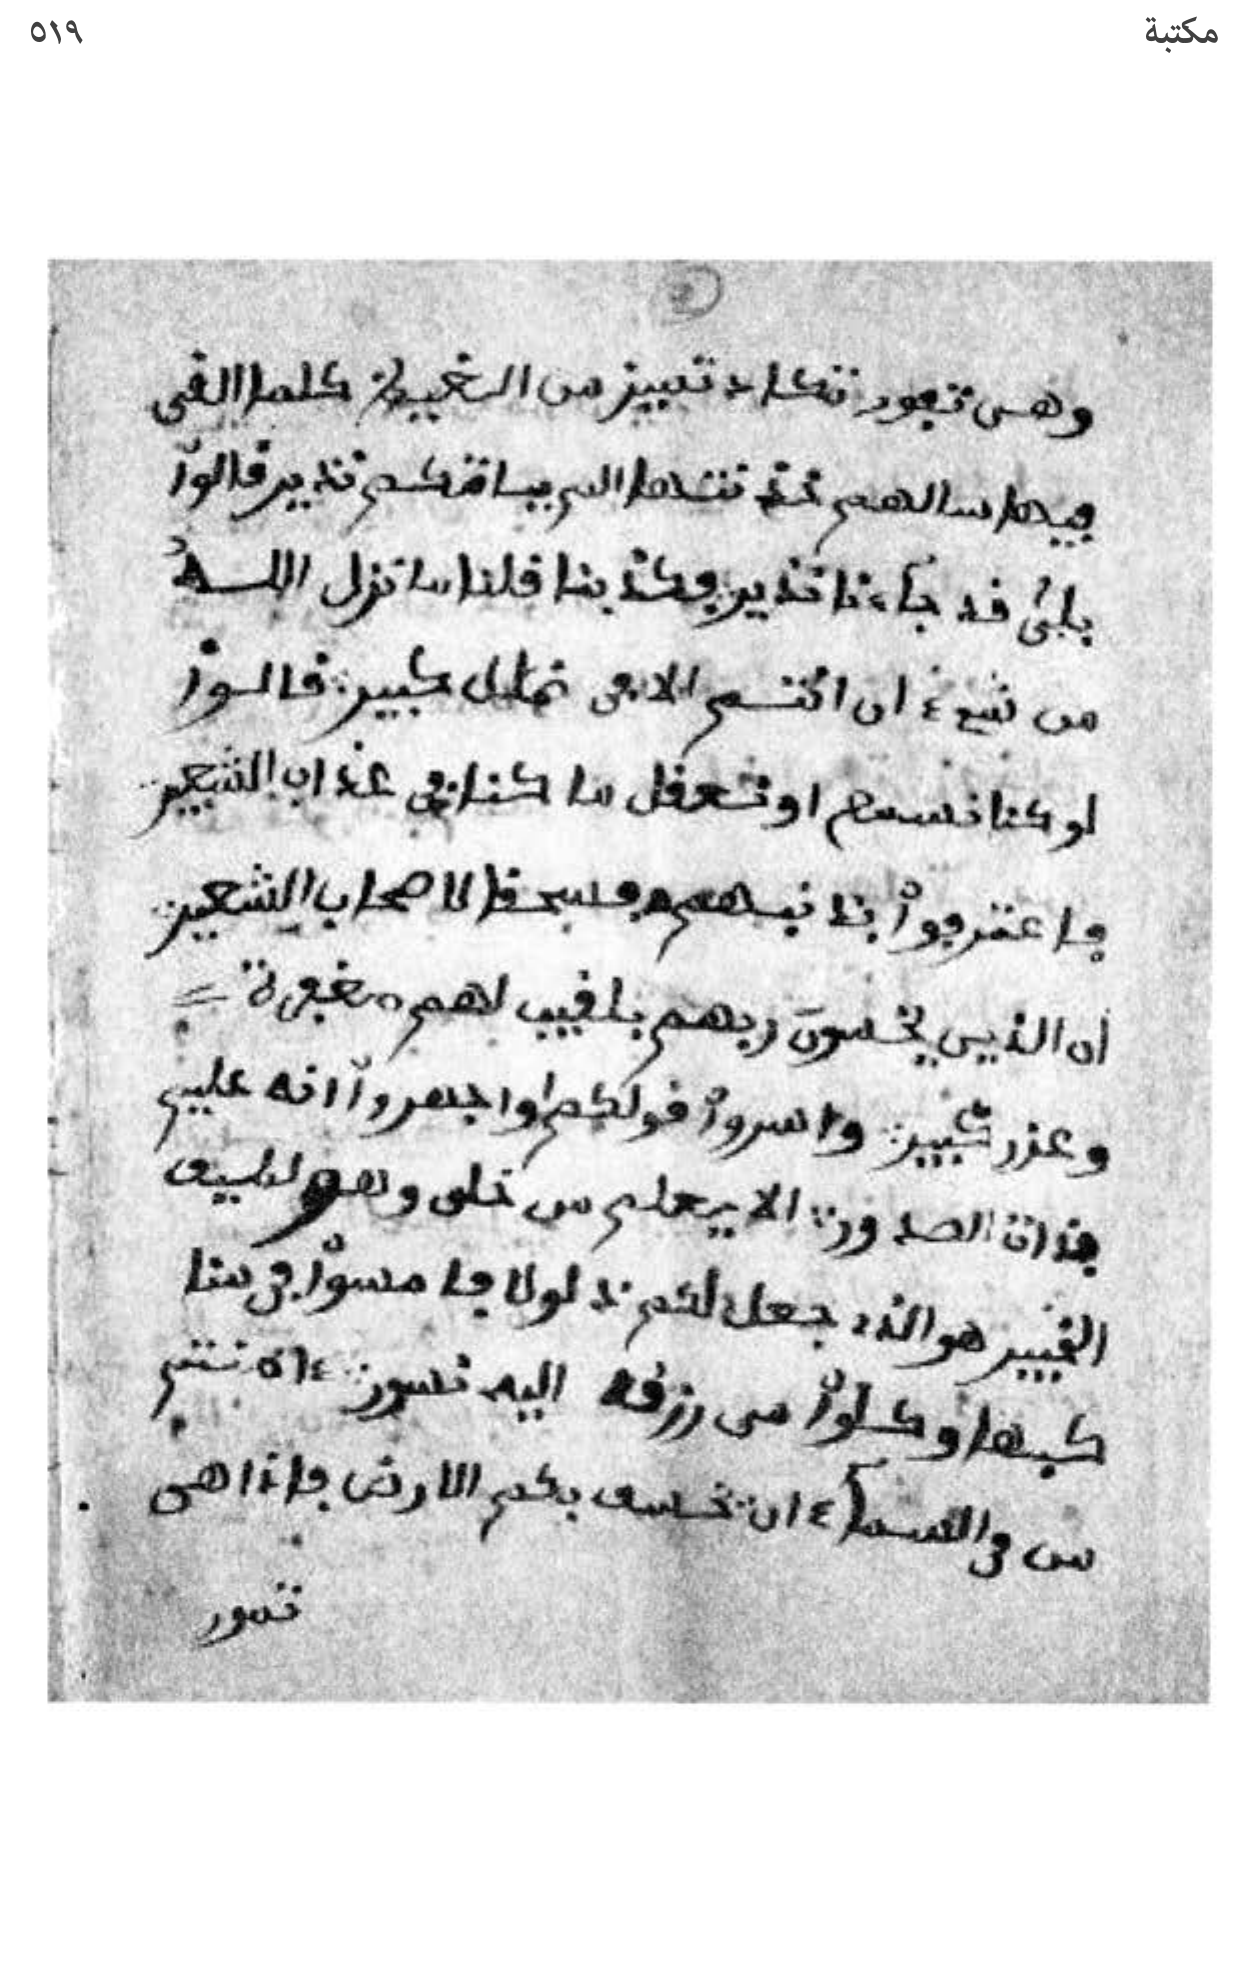 مكتبة
٥١٩
وهى تفور تكاد تميز من الغيظ كلما القى
فيها سالهم خذ نتها الم ياتكم نذير قالوا
بلى قد جآءنا نذير فكذ بنا قلنا ما نزل اللــه
من شىء ان انتــم الا فى ضلل كبير قالــوا
لو كنا نسمع او نعقل ما كنا فى عذاب الشعير
فا عترفوا بذ نبــهم فسحقا لا صحاب الشعير
ان الذين يخشون ربهم بلغيب لهم مغفرة
وعزر كبير واسروا قولكم اوا جهروا انه عليم
بذات الصدور الا يعلم من خلق وهو لطيف
الخبير هو الذ جعل لكم ذ لولا فا مسوا فى منا
كبها وكلوا من رزقه اليه نسور ءا منتم
من فى السمآء ان يخسف بكم الارض فاذا هى
تمور